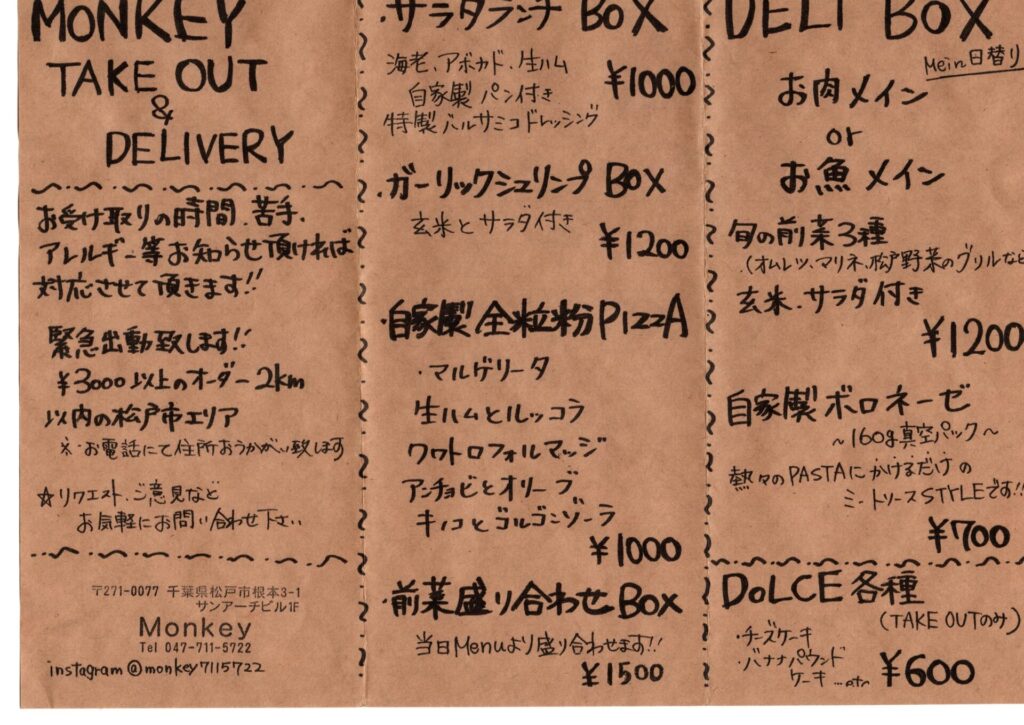 MONKEY
TAKE OUT
&
DELIVERY
お受け取りの時間、苦手、
アレルギー等お知らせ頂ければ
対応させて頂きます!!
緊急出動致します!!
¥3000以上のオーダー2km
以内の松戸市エリア
※・お電話にて住所おうかがい致します
☆リクエスト、ご意見など
お気軽にお問い合わせ下さい
〒271-0077 千葉県松戸市根本3-1
サンアーチビル1F
Monkey
Tel 047-711-5722
instagram@monkey7115722
・サラダランチ BOX
海老、アボカド、生ハム
¥1000
自家製 パン付き
特製バルサミコドレッシング
・ガーリックシュリンプ BOX
玄米とサラダ付き
¥1200
・自家製 全粒粉 PIZZA
・マルゲリータ
生ハムとルッコラ
クワトロフォルマッジ
アンチョビとオリーブ
キノコとゴルゴンゾーラ
¥1000
・前菜盛り合わせ BOX
当日Menuより盛り合わせます!!
¥1500
DELI BOX
Mein日替り
お肉メイン
or
お魚メイン
旬の前菜3種
(オムレツ、マリネ、松戸野菜のグリルなど
玄米、サラダ付き
¥1200
自家製ボロネーゼ
~160g真空パック~
熱々のPASTAにかけるだけの
ミートソースSTYLEです!!
¥700
DoLCE 各種
(TAKE OUTのみ)
・チーズケーキ
・バナナパウンド
ケーキ …etc
¥600